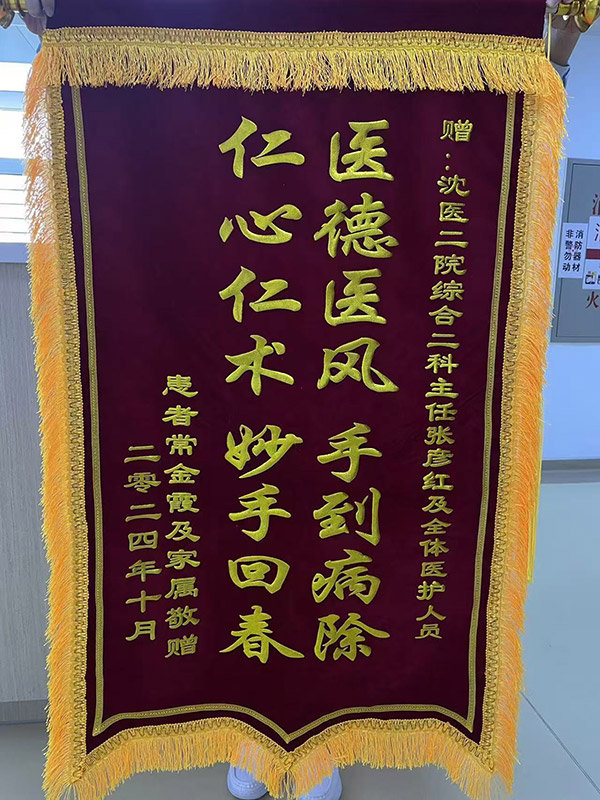 赠：沈医二院综合二科主任张彦红及全体医护人员
医德医风 手到病除
仁心仁术 妙手回春
患者常金霞及家属敬赠
二零二四年十月
消防器材
非警勿动
火